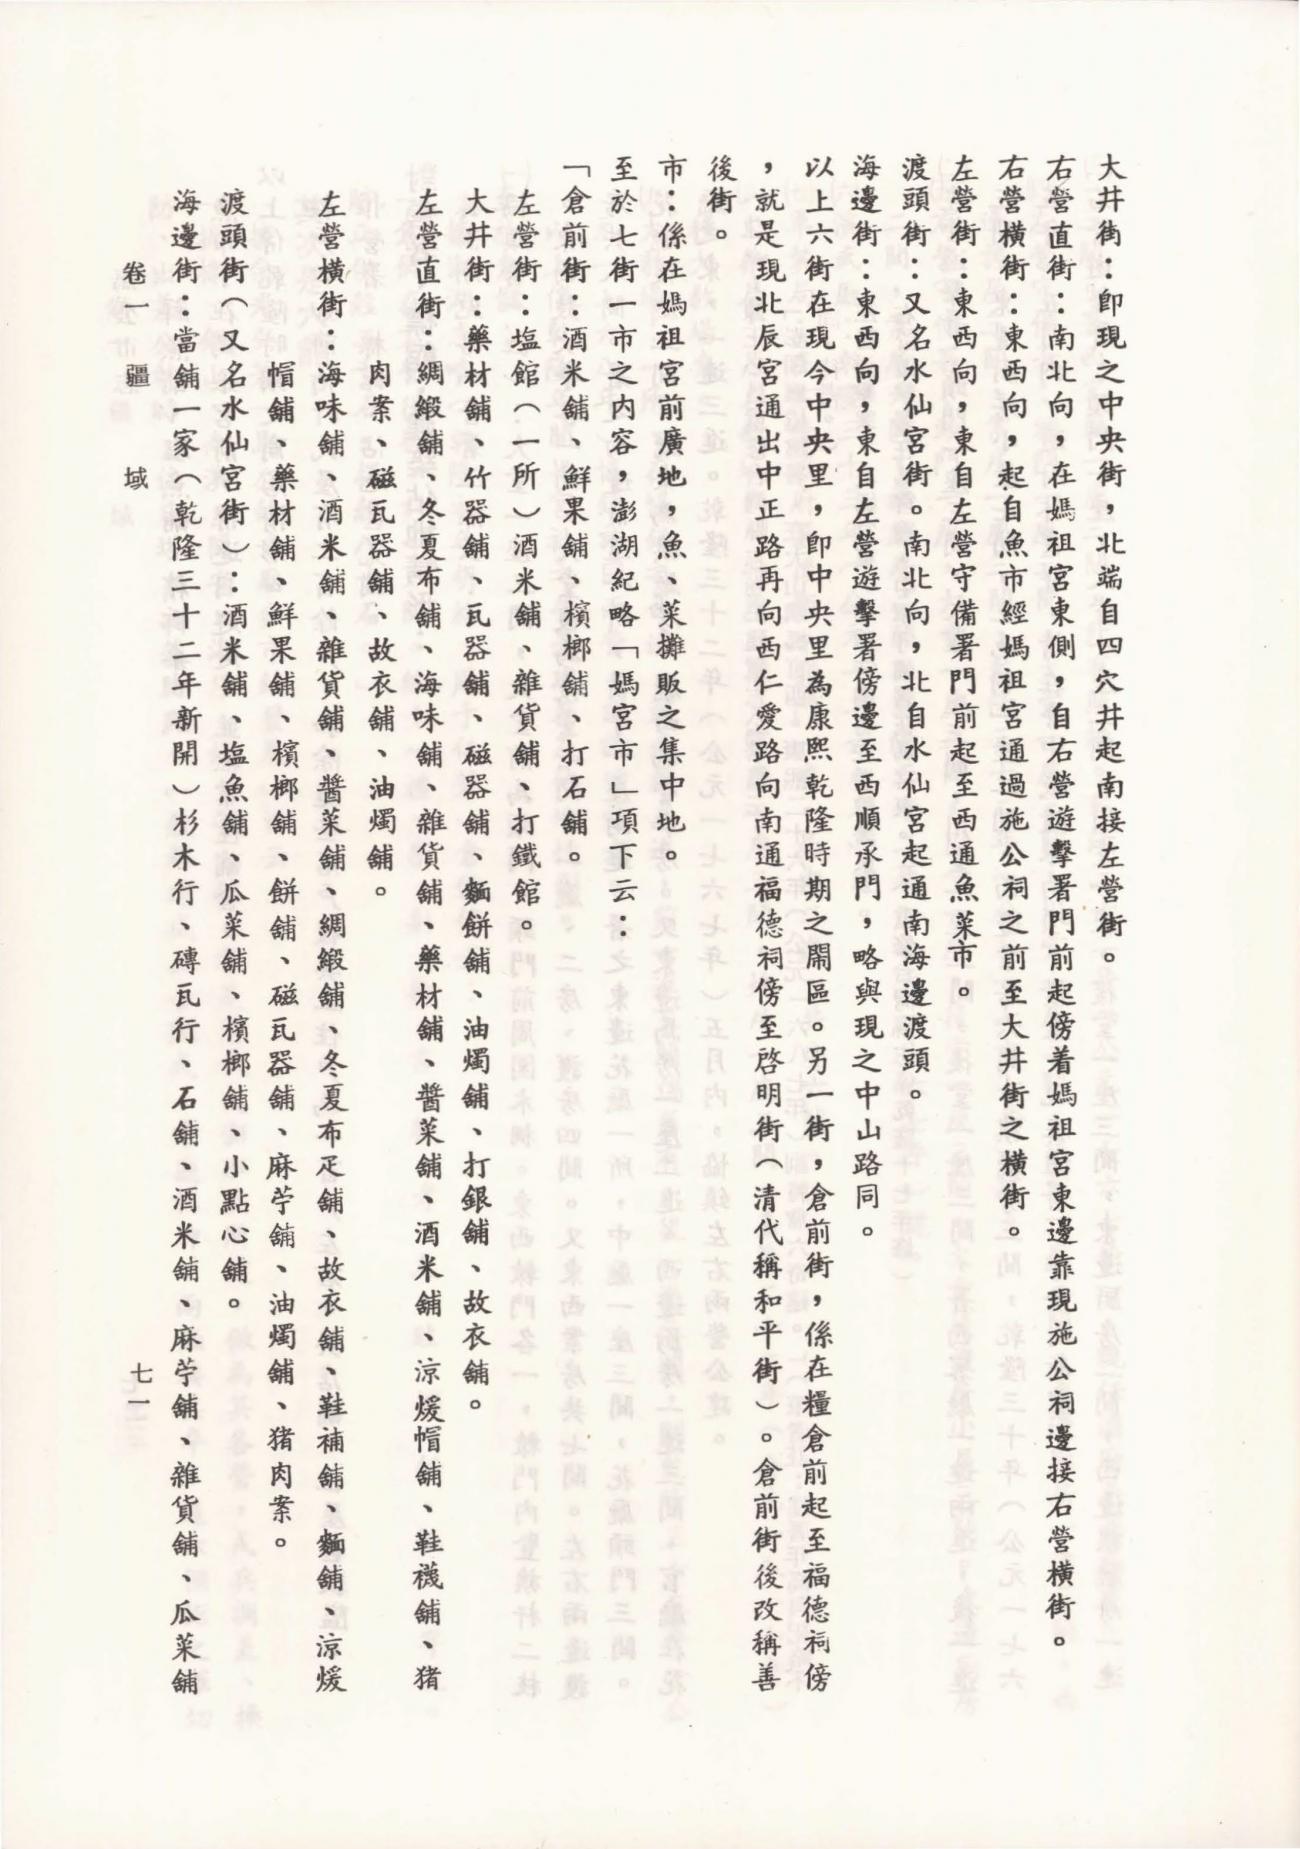 大井街：卽現之中央街，北端自四穴井起南接左營街。
右營直街：南北向，在媽祖宮東側，自右營遊擊署門前起傍着媽祖宮東邊靠現施公祠邊接右營橫街。
右營橫街：東西向，起自魚市經媽祖宮通過施公祠之前至大井街之橫街。
左營街：東西向，東自左營守備署門前起至西通魚菜市。
渡頭街：又名水仙宮街。南北向，北自水仙宮起通南海邊渡頭。
海邊街：東西向，東自左營遊擊署傍邊至西順承門，略與現之中山路同。
以上六街在現今中央里，卽中央里為康熙乾隆時期之鬧區。另一街，倉前街，係在糧倉前起至福德祠傍
，就是現北辰宮通出中正路再向西仁愛路向南通福德祠傍至啓明街（清代稱和平街）。倉前街後改稱善
後街。
市：係在媽祖宮前廣地，魚、菜攤販之集中地。
至於七街一市之內容，澎湖紀略「媽宮市」項下云：
「倉前街：酒米舖、鮮果舖、檳榔舖、打石舖。
左營街：塩館（一所）酒米舖、雜貨舖、打鐵館。
大井街：藥材舖、竹器舖、瓦器舖、磁器舖、麵餅舖、油燭舖、打銀舖、故衣舖。
左營直街：綢緞舖、冬夏布舖、海味舖、雜貨舖、藥材舖、醬菜舖、酒米舖、涼煖帽舖、鞋襪舖、猪
肉案、磁瓦器舖、故衣舖、油燭舖。
左營橫街：海味舖、酒米舖、雜貨舖、醬菜舖、綢緞舖、冬夏布疋舖、故衣舖、鞋補舖、麵舖、涼煖
帽舖、藥材舖、鮮果舖、檳榔舖、餅舖、磁瓦器舖、麻苧舖、油燭舖、猪肉案。
渡頭街（又名水仙宮街）：酒米舖、塩魚舖、瓜菜舖、檳榔舖、小點心舖。
海邊街：當舖一家（乾隆三十二年新開）杉木行、磚瓦行、石舖、酒米舖、麻苧舖、雜貨舖、瓜菜舖
卷一　疆　域
七一